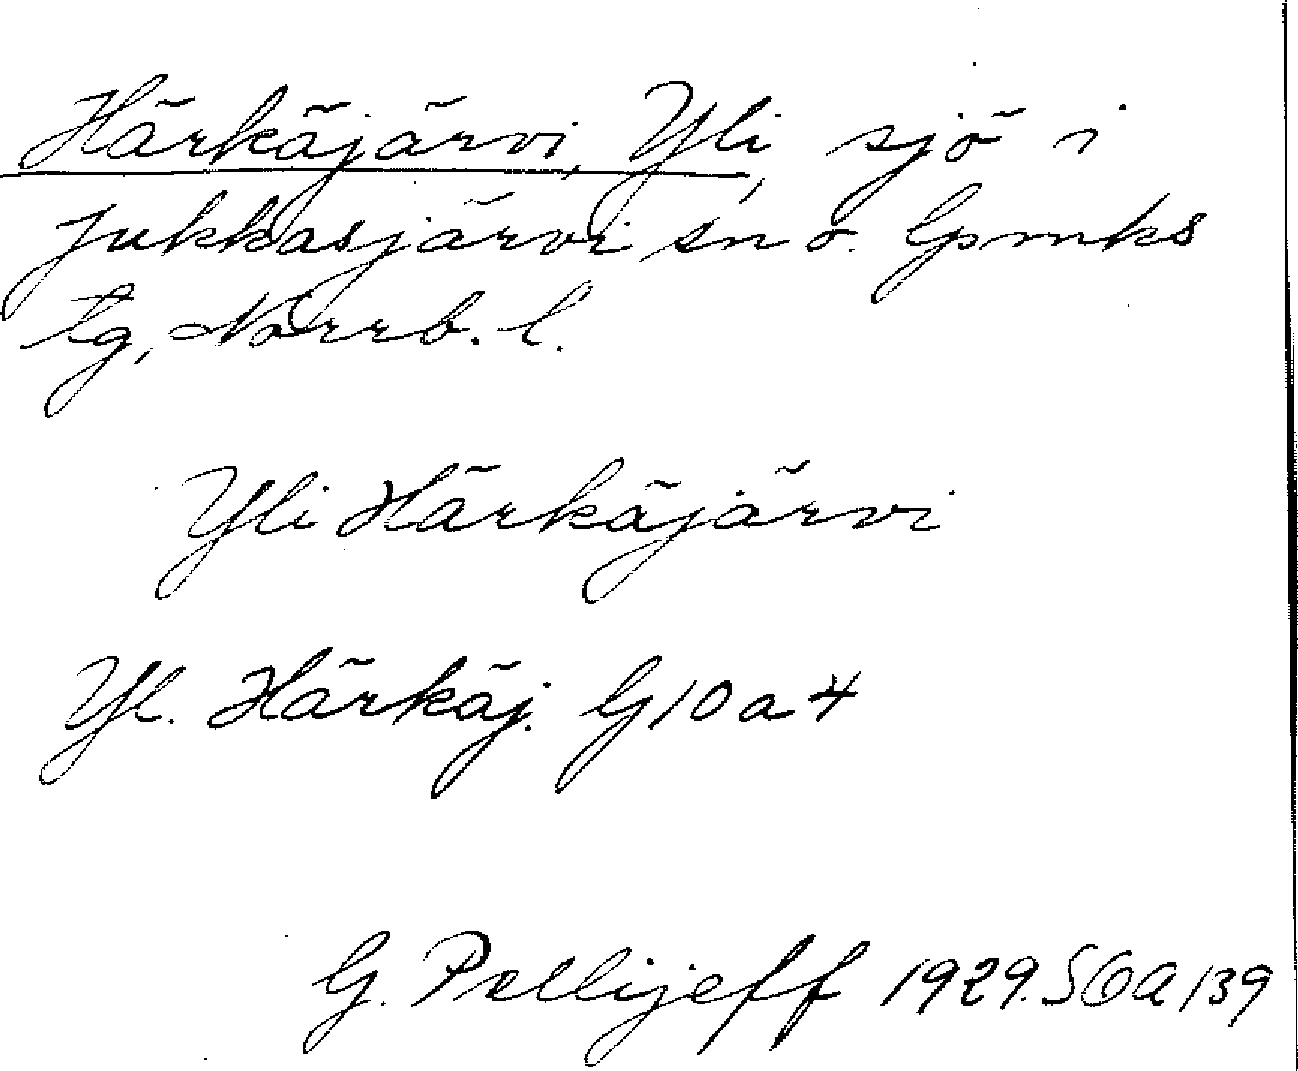 Härkäjärvi, Yli, sjö i
Jukkasjärvi sn o. Gpmks
tg, Norrb. l.
Yli Härkäjärvi
Yl. Härkäj. G10a4
G. Pellijeff 1929. SOA 139